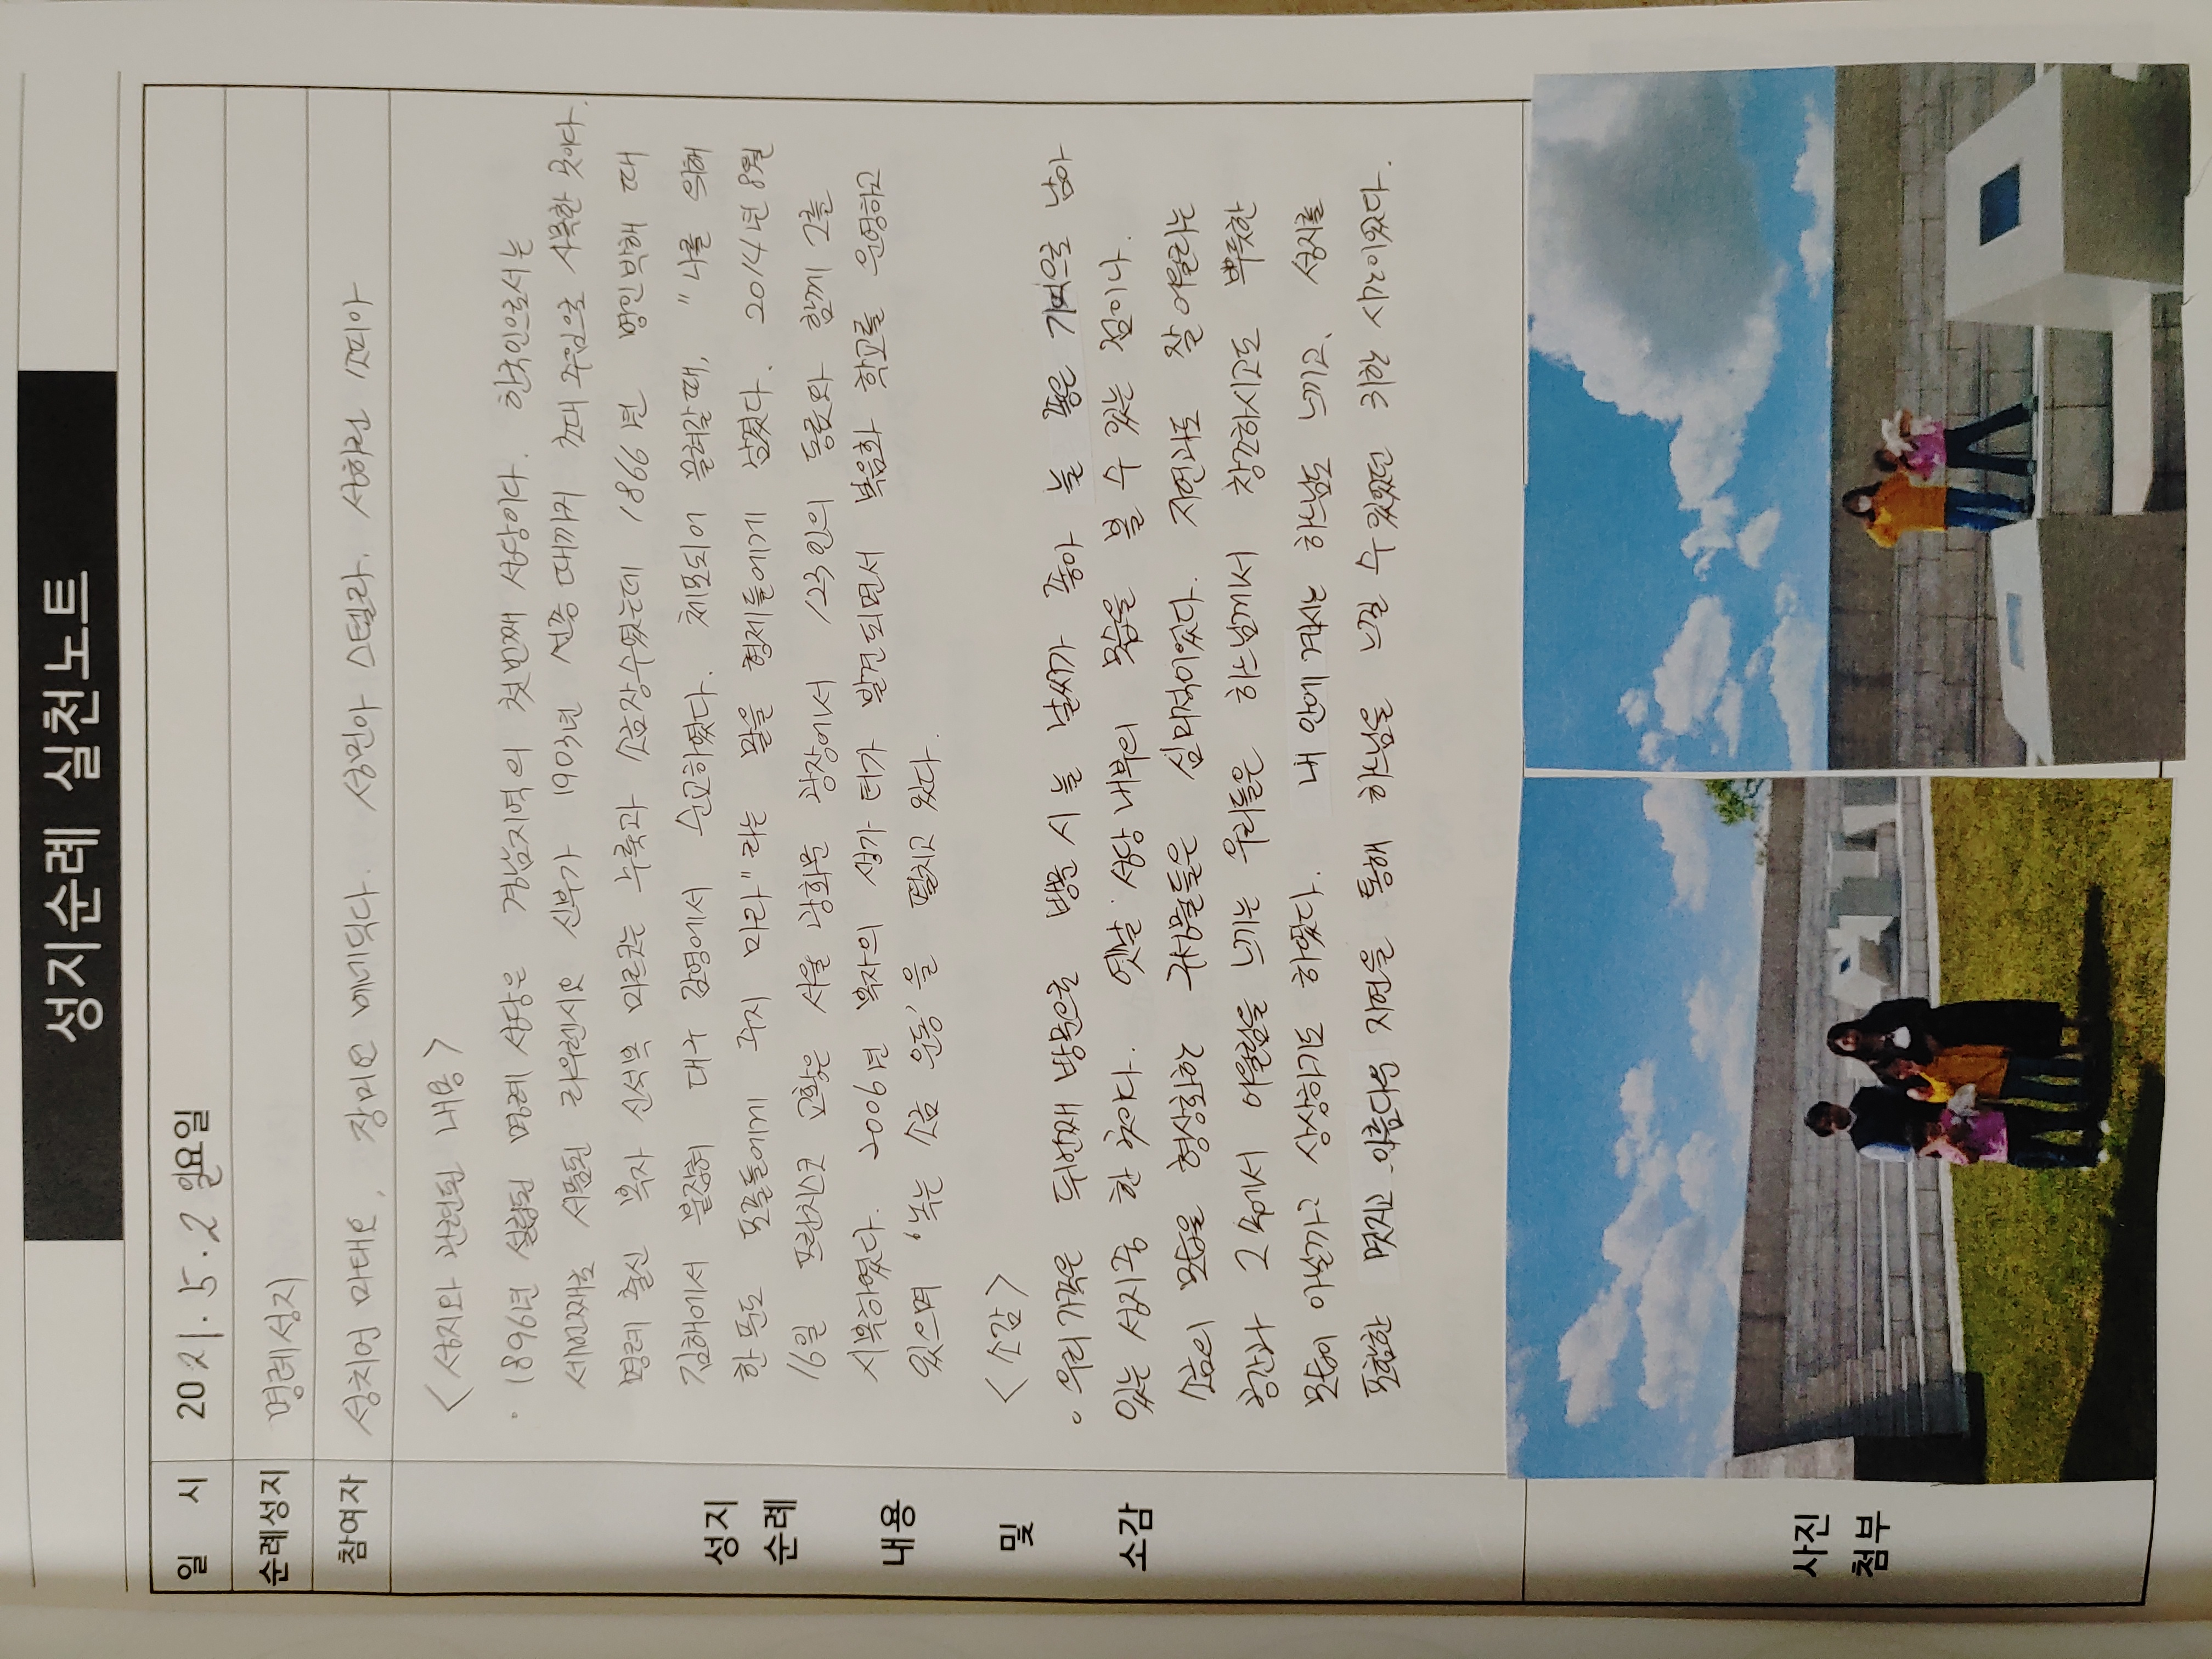 성지순례 실천노트
일 시 2021. 5. 2 일요일
순례성지 명례성지
참여자 성치언 마태오, 장미연 베네딕다. 성민아 스텔라. 성하린 소피아
<성지와 관련된 내용>
· 1896년 설립된 명례 성당은 경남지역의 첫번째 성당이다. 한국인으로서는
세번째로 서품된 라우렌시오 신부가 1903년 선종 때까지 초대 주임으로 사목한 곳이다.
명례 출신 복자 신석복 마르코는 누룩과 소금장수였는데 1866년 병인박해 때
김해에서 붙잡혀 대구 감영에서 순교하였다. 체포되어 끌려갈때, "나를 위해
한푼도 포졸들에게 주지 마라"라는 말을 형제들에게 남겼다. 2014년 8월
16일 프란치스코 교황은 서울 광화문 광장에서 123인의 동료와 함께 그를
시복하였다. 2006년 복자의 생가 터가 발견되면서 복음화 학교를 운영하고
있으며 '녹는 소금 운동'을 펼치고 있다.
<소감>
○ 우리가족은 두번째 방문으로 방문 시 늘 날씨가 좋아 늘 좋은 기억으로 남아
있는 성지중 한 곳이다. 옛날 성당 내부의 모습을 볼 수 있는 점이나.
소금의 모습을 형상화한 구성물들은 심미적이었다. 자연과도 잘 어울리는
공간과 그 속에서 어울림을 느끼는 우리들은 하느님께서 창조하시고도 뿌듯한
모습이 아닐까고 상상하기도 하였다. 내 안에 계시는 하느님도 느끼고, 성지를
포함한 멋지고 아름다운 자연을 통해 하느님을 느낄 수 있었던 귀한 시간이었다.
성지
순례
내용
및
소감
사진
첨부